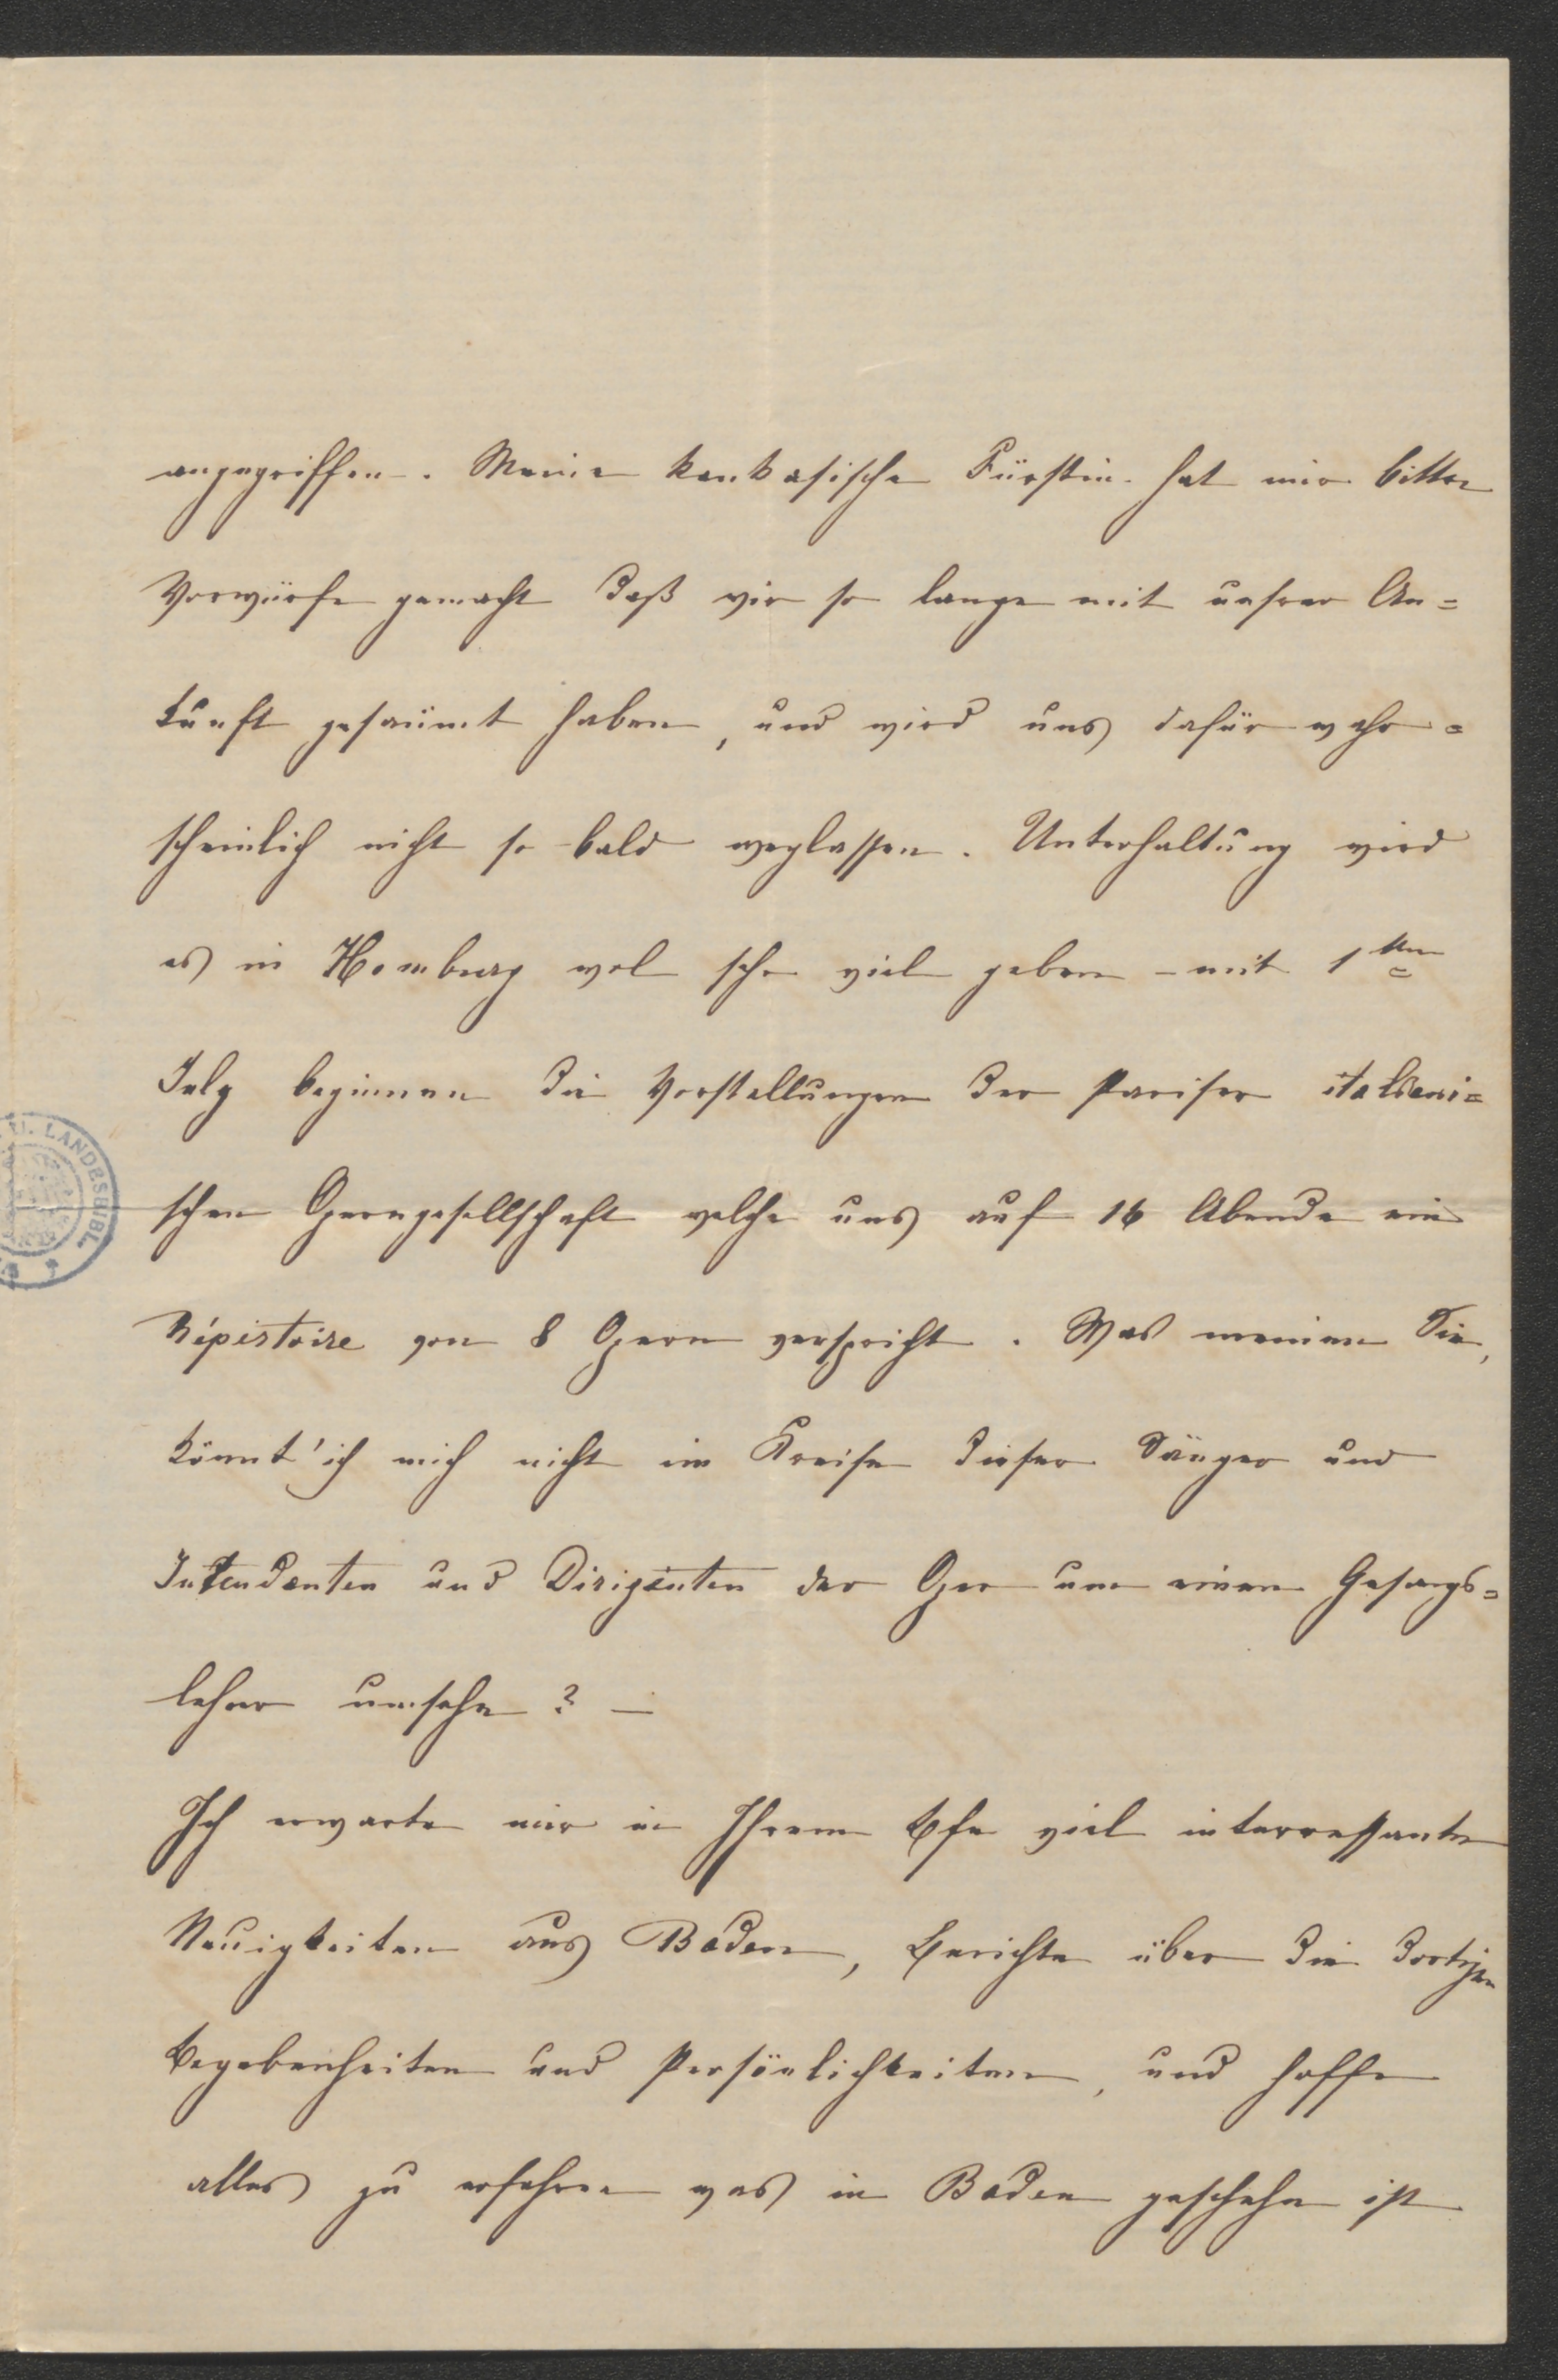 angegriffen. Meine kaukasische Fürstin hat mir bittre
Vorwürfe gemacht daß wir so lange mit unsrer An=
kunft gesäumt haben, und wird uns dafür wahr=
scheinlich nicht so bald weglassen. Unterhaltung wird
es in Homburg wol sehr viel geben – mit 1ten
July beginnen die Vorstellungen der Pariser italieni=
schen Operngesellschaft welche uns auf 16 Abende ein
Répertoire von 8 Opern verspricht. Was meinen Sie,
könnt' ich mich nicht im Kreise dieser Sänger und
Intendanten und Dirigenten der Oper um einen Gesangs=
lehrer umsehn? –
Ich erwarte mir in Ihrem Bfe viel interressante
Neuigkeiten aus Baden, Berichte über die dortigen
Begebenheiten und Persönlichkeiten, und hoffe
alles zu erfahren was in Baden geschehn ist
U. LANDESBIBL.